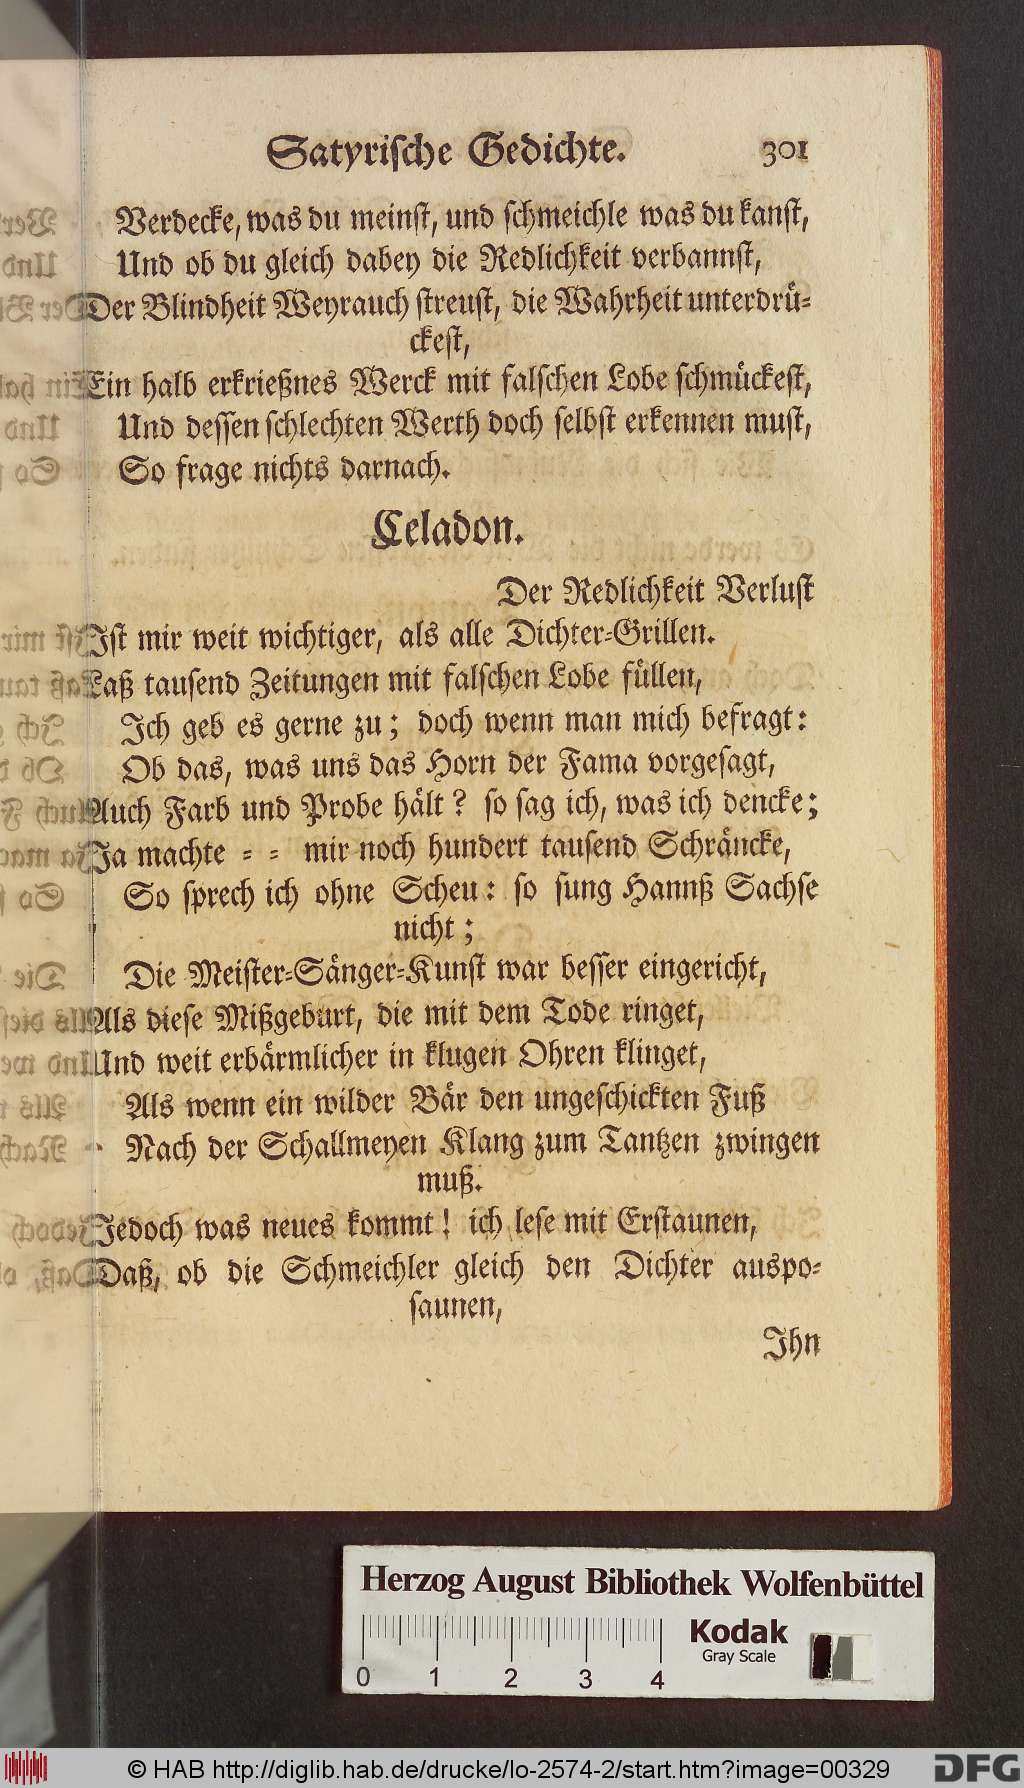 Satyrische Gedichte. 301
Verdecke, was du meinst, und schmeichle was du kanst,
Und ob du gleich dabey die Redlichkeit verbannst,
Der Blindheit Weyrauch streust, die Wahrheit unterdrü-
ckest,
Ein halb erkrießnes Werck mit falschen Lobe schmückest,
Und dessen schlechten Werth doch selbst erkennen must,
So frage nichts darnach.
Celadon.
Der Redlichkeit Verlust
Ist mir weit wichtiger, als alle Dichter-Grillen.
Laß tausend Zeitungen mit falschen Lobe füllen,
Ich geb es gerne zu; doch wenn man mich befragt:
Ob das, was uns das Horn der Fama vorgesagt,
Auch Farb und Probe hält? so sag ich, was ich dencke;
Ja machte - - mir noch hundert tausend Schräncke,
So sprech ich ohne Scheu: so sung Hannß Sachse
nicht;
Die Meister-Sänger-Kunst war besser eingericht,
Als diese Mißgeburt, die mit dem Tode ringet,
Und weit erbärmlicher in klugen Ohren klinget,
Als wenn ein wilder Bär den ungeschickten Fuß
Nach der Schallmeyen Klang zum Tantzen zwingen
muß.
Jedoch was neues kommt! ich lese mit Erstaunen,
Daß, ob die Schmeichler gleich den Dichter auspo-
saunen,
Ihn
Herzog August Bibliothek Wolfenbüttel
Kodak
Gray Scale
0 1 2 3 4
© HAB http://diglib.hab.de/drucke/lo-2574-2/start.htm?image=00329
DFG